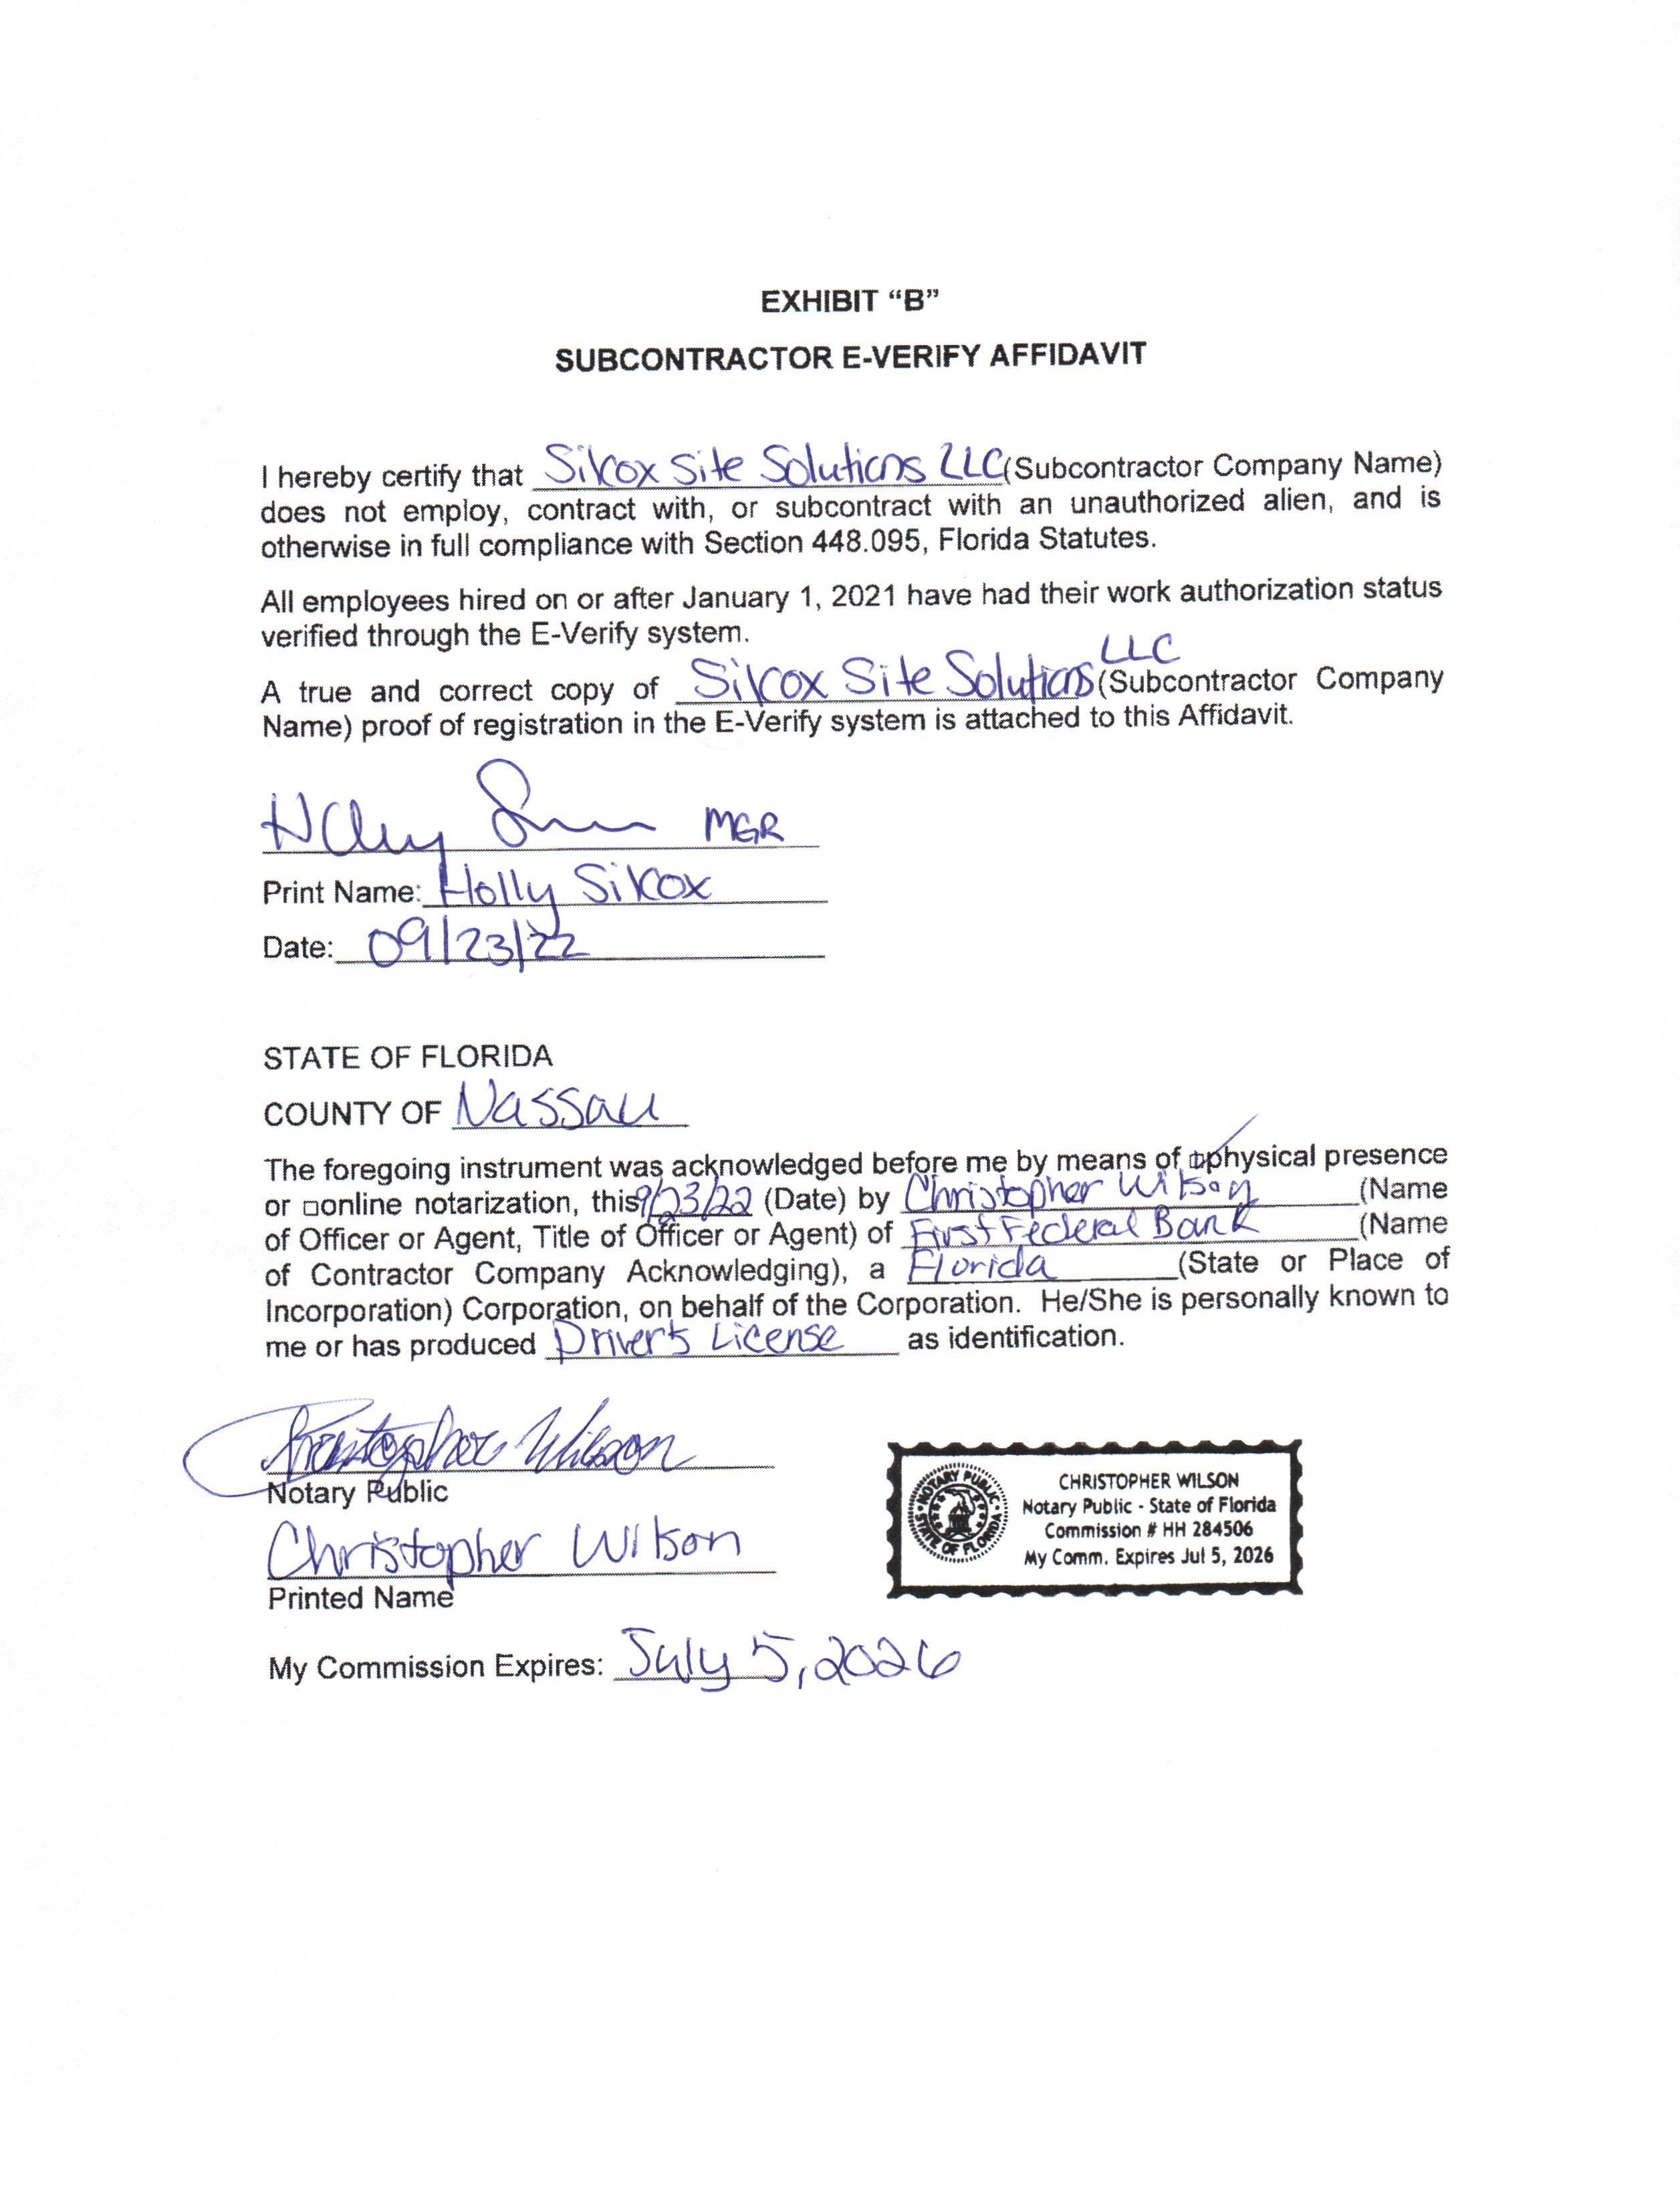 EXHIBIT “B”
SUBCONTRACTOR E-VERIFY AFFIDAVIT
I hereby certify that Silcox Site Solutions LLC (Subcontractor Company Name)
does not employ, contract with, or subcontract with an unauthorized alien, and is
otherwise in full compliance with Section 448.095, Florida Statutes.
All employees hired on or after January 1, 2021 have had their work authorization status
verified through the E-Verify system.
A true and correct copy of Silcox Site Solutions LLC (Subcontractor Company
Name) proof of registration in the E-Verify system is attached to this Affidavit.
MGR
Print Name: Holly Silcox
Date: 09/23/22
STATE OF FLORIDA
COUNTY OF Nassau
The foregoing instrument was acknowledged before me by means of □physical presence
or □online notarization, this 9/23/22 (Date) by Christopher Wilson (Name
of Officer or Agent, Title of Officer or Agent) of First Federal Bank (Name
of Contractor Company Acknowledging), a Florida (State or Place of
Incorporation) Corporation, on behalf of the Corporation. He/She is personally known to
me or has produced Driver's License as identification.
Christopher Wilson
Notary Public
Christopher Wilson
Printed Name
My Commission Expires: July 5, 2026
NOTARY PUBLIC
STATE OF FLORIDA
CHRISTOPHER WILSON
Notary Public - State of Florida
Commission # HH 284506
My Comm. Expires Jul 5, 2026